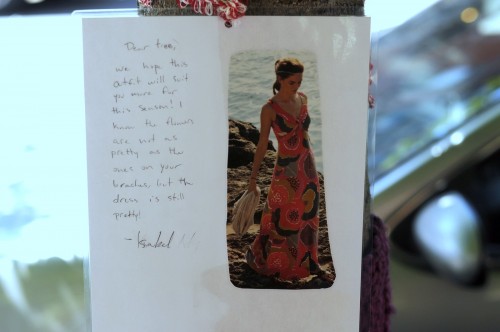 Dear tree,
We hope this
outfit will suit
you more for
this season! I
know the flowers
are not as
pretty as the
ones on your
branches, but the
dress is still
pretty!
- Isabel !!